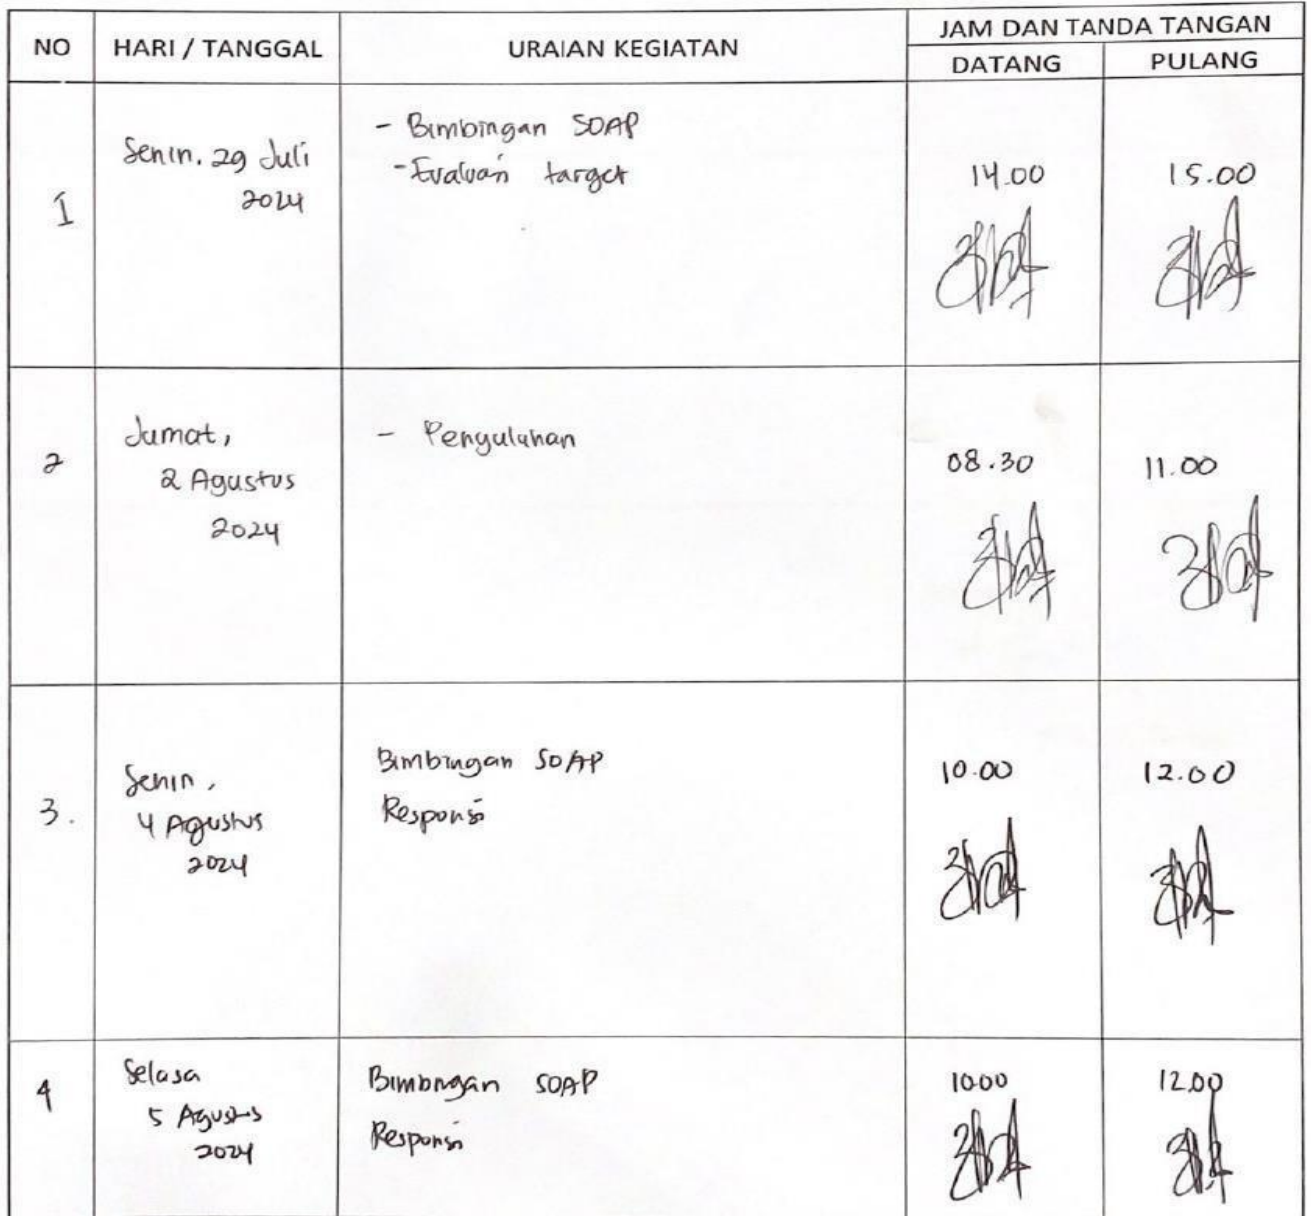 NO HARI / TANGGAL URAIAN KEGIATAN JAM DAN TANDA TANGAN
DATANG PULANG
1 Senin, 29 Juli
2024
- Bimbingan SOAP
- Evaluasi target
14.00 15.00
2 Jumat,
2 Agustus
2024
- Penyuluhan
08.30 11.00
3. Senin,
4 Agustus
2024
Bimbingan SOAP
Responsi
10.00 12.00
4 Selasa
5 Agustus
2024
Bimbingan SOAP
Responsi
10.00 12.00